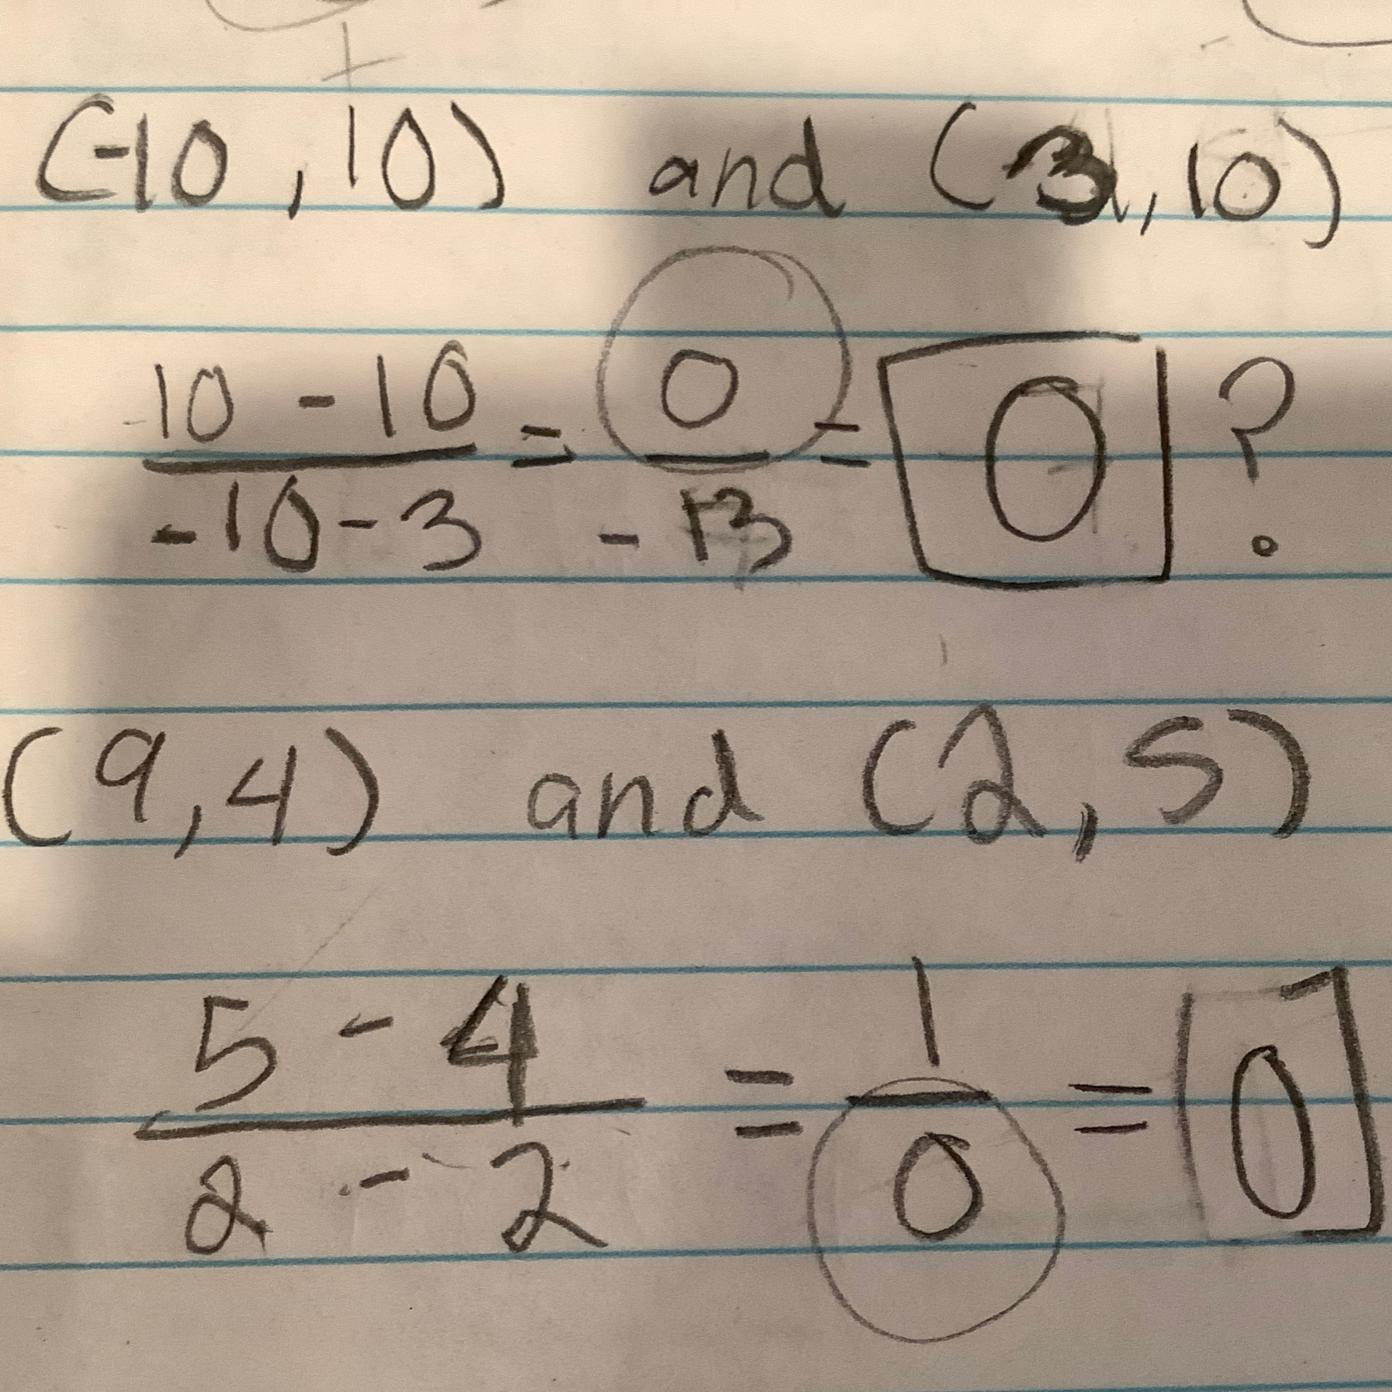 (-10, 10) and (3, 10)
10 - 10 / -10 - 3 = 0 / -13 = 0 ?
(9, 4) and (2, 5)
5 - 4 / 2 - 2 = 1 / 0 = 0